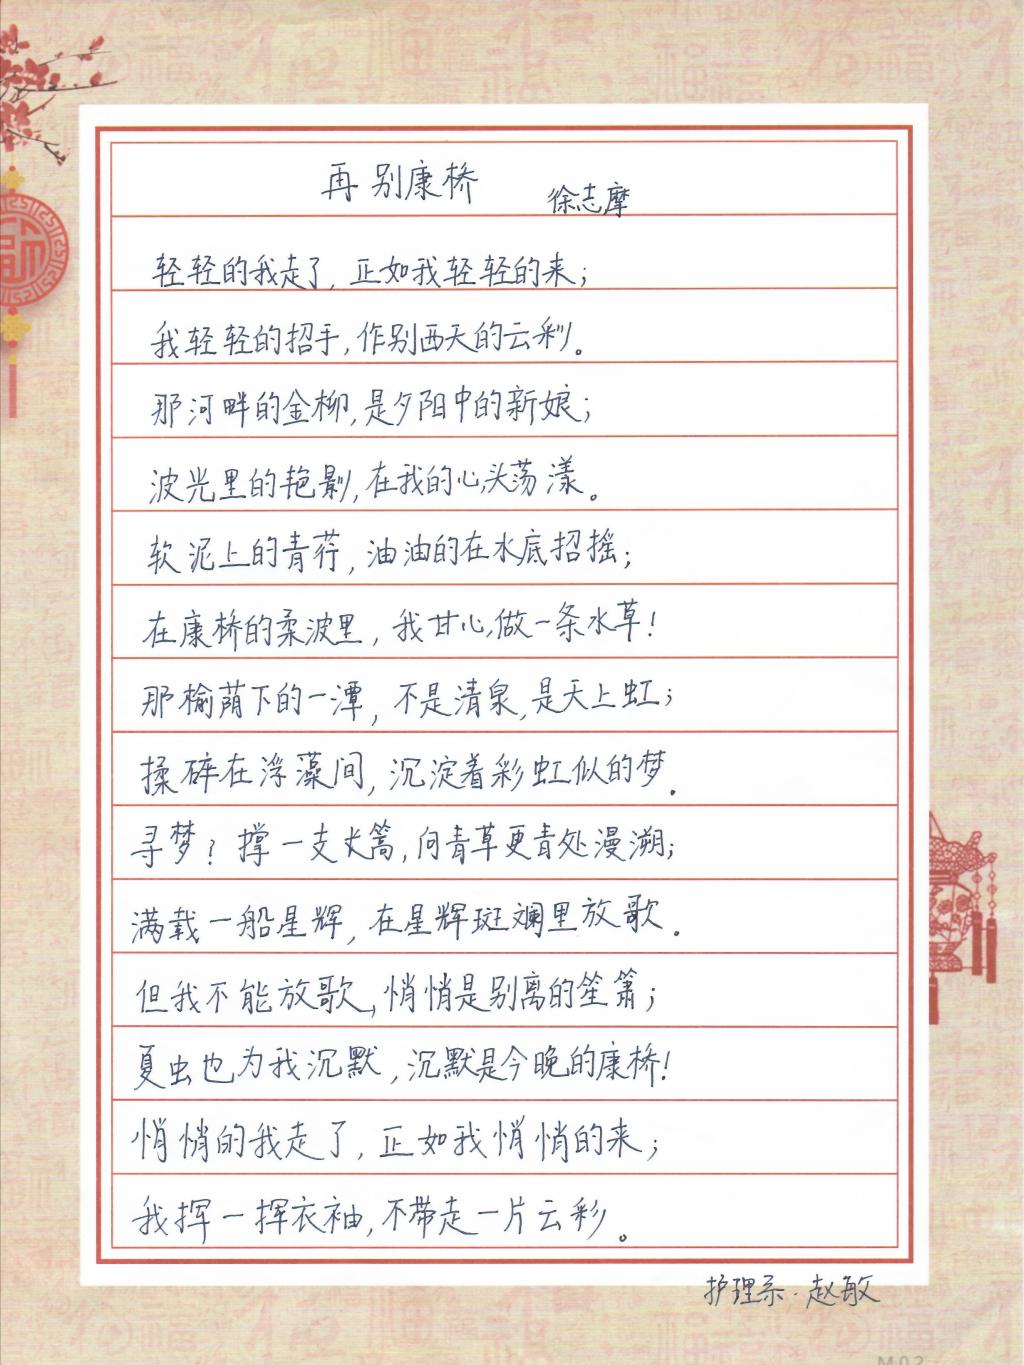 再别康桥 徐志摩
轻轻的我走了，正如我轻轻的来；
我轻轻的招手，作别西天的云彩。
那河畔的金柳，是夕阳中的新娘；
波光里的艳影，在我的心头荡漾。
软泥上的青荇，油油的在水底招摇；
在康桥的柔波里，我甘心做一条水草！
那榆荫下的一潭，不是清泉，是天上虹；
揉碎在浮藻间，沉淀着彩虹似的梦．
寻梦？撑一支丈篙，向青草更青处漫溯；
满载一船星辉，在星辉斑斓里放歌．
但我不能放歌，悄悄是别离的笙箫；
夏虫也为我沉默，沉默是今晚的康桥！
悄悄的我走了，正如我悄悄的来；
我挥一挥衣袖，不带走一片云彩。
护理系·赵敏
M02